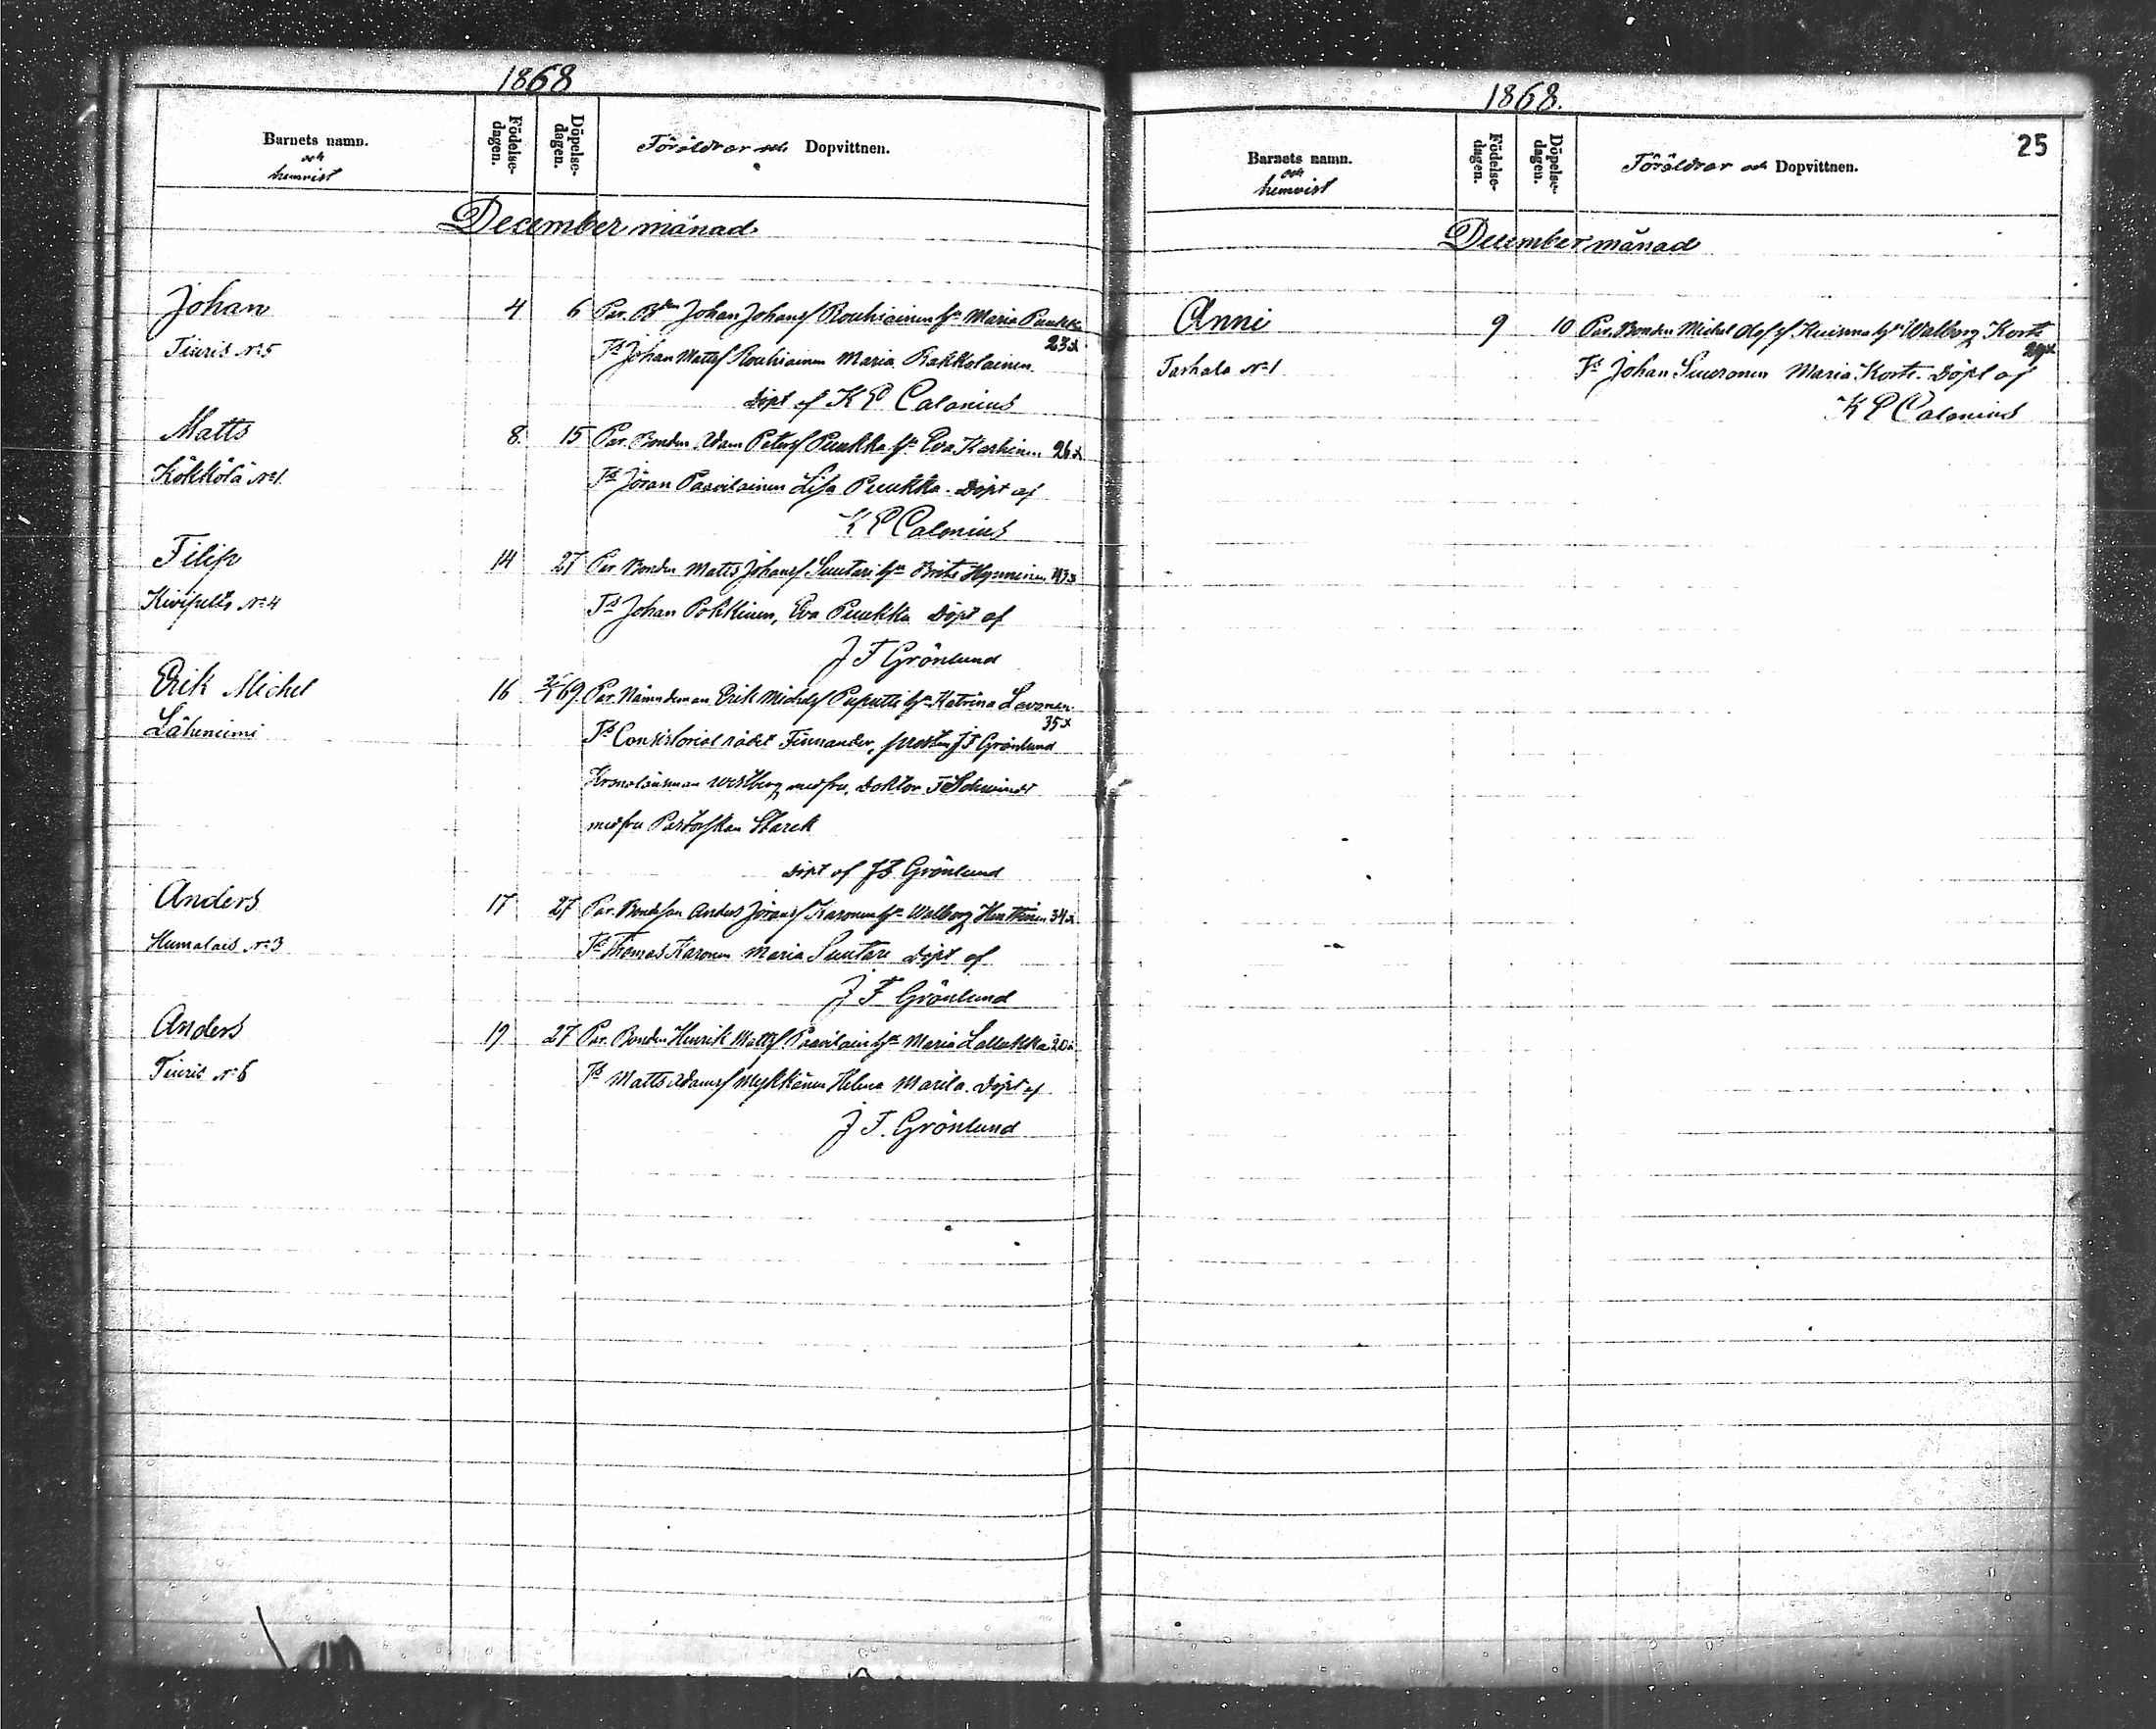 1868
Barnets namn.
och
hemvist
Födelse-
dagen.
Döpelse-
dagen.
Föräldrar och Dopvittnen.
December månad
Johan 4 6 Par. Bdn Johan Johansf Rouhiainen hu Maria Puukka
23 å
Tiuris No 5 Ts Johan Mattsf Rouhiainen Maria Rakkolainen.
Döpt af K E Calonius
Matts 8. 15 Par. Bonden Adam Petersf Puukka hu Eva Karhinen 26 å
Kökkölä No 1. Ts Jöran Paavilainen Lisa Puukka. Döpt af
K E Calonius
Filip 14 27 Par Bonden Matts Johansf Suutari hu Brita Hynninen 43 å
No 4 Ts Johan Pokkinen, Eva Puukka Döpt af
J F Grönlund
Erik Michel 16 69. Par. Nämndeman Erik Michelsf Puputti hu Katrina
35 å
Läheniemi Ts Consistorial rådet Finnander, prosten J F Grönlund
Kronolänsman Westberg med fru, Doktor T Schwindt
med fru Pastorskan Starck
Döpt af J F Grönlund
Anders 17 27 Par. Bondeson Anders Jöransf Karonen hu Walborg 34 å
Humalais No 3 Ts Thomas Karonen Maria Suutari Döpt af
J F Grönlund
Anders 19 27 Par. Bonden Henrik Mattsf Paavilain hu Maria Lallukka 20 å
Tiuris No 6 Ts Matts Adamsf Mykkänen Helena Marila. Döpt af
J F. Grönlund
1868.
25
Barnets namn.
och
hemvist
Födelse-
dagen.
Döpelse-
dagen.
Föräldrar och Dopvittnen.
December månad
Anni 9 10 Par. Bonden Michel Olofsf Kuisma hu Walborg Korte
No 1 Ts Johan Suuronen Maria Korte. Döpt af
K E Calonius